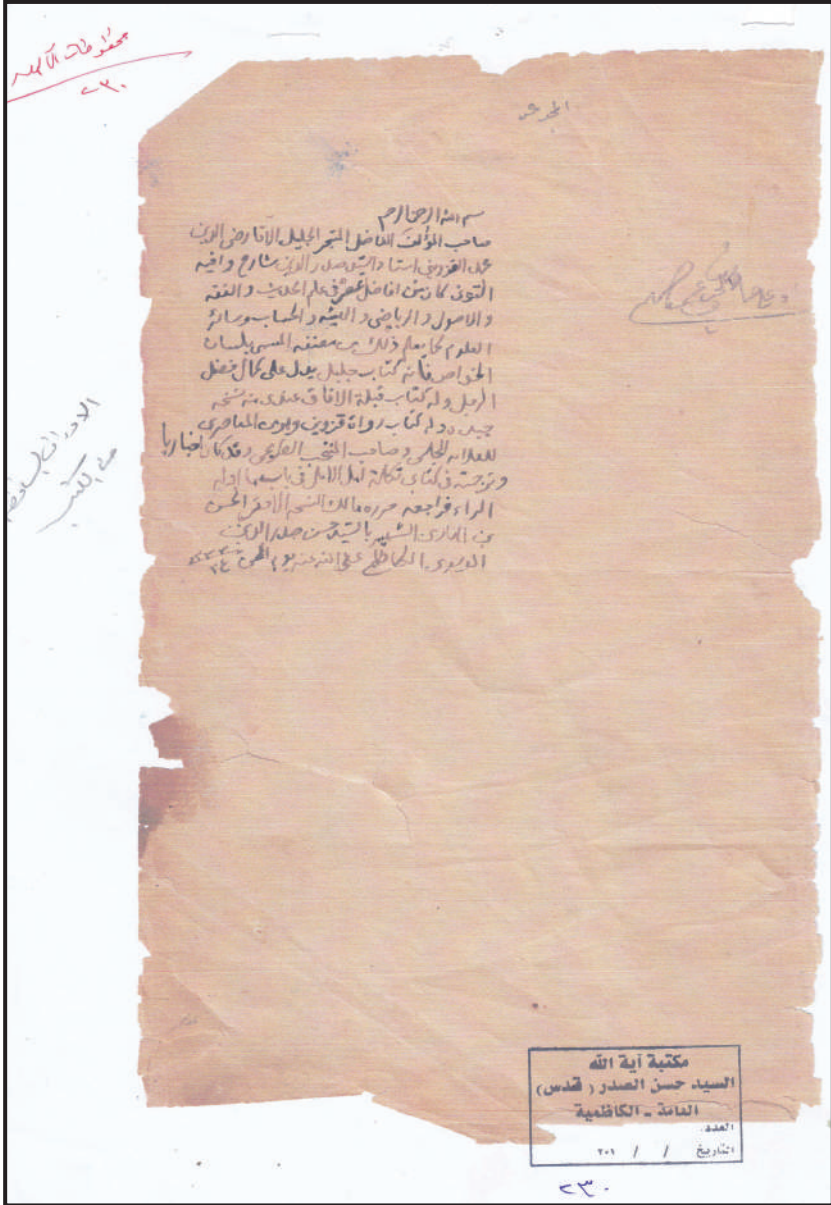 ٢٣٠
بسم الله الرحمن الرحيم
صاحب المؤلف الفاضل المتبحر الجليل الآقا رضى الدين
محمد القزوينى استاد السيد صدر الدين شارح وافيه
التونى كان من افاضل عصره فى علم الحديث و الفقه
و الاصول و الرياضى و الهيئه و الحساب وسائر
العلوم كما يعلم ذلك من مصنفه المسمى بلسان
الخواص فانه كتاب جليل يدل على كمال فضل
الرجل وله كتاب قبلة الافاق عندى منه نسخه
جيده وله كتاب رواة قزوين وهو من المعاصرين
للعلامه المجلسى و صاحب المنتخب الطريحى و قد كان اخباريا
و ترجمته فى كتابى تكلة امل الامل فى باب ما اوله
الراء فراجعه حرره مالك النسخه الاحقر الحسن
بن الهادى الشهير بالسيد حسن صدر الدين
الموسوى الكاظمى عفى الله عنه يوم
مكتبة آية الله
السيد حسن الصدر (قدس)
العامة - الكاظمية
العدد:
التاريخ / / ٢٠١
٢٣٠